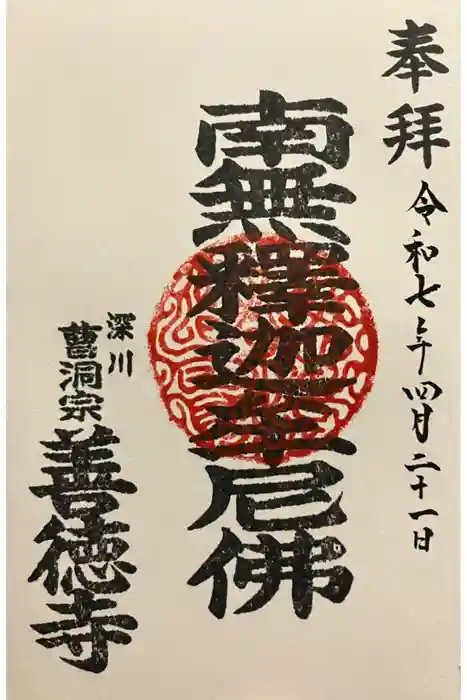 奉拝
令和七年四月二十一日
南無釋迦牟尼佛
深川
曹洞宗
善徳寺